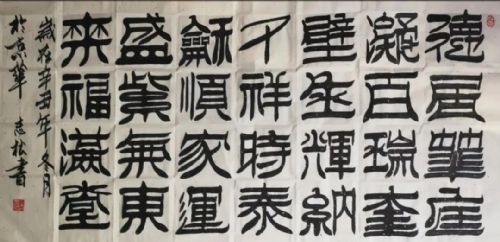 德居華庭
凝百瑞奎
壁垂輝納
千祥時泰
龢順家運
盛紫氣東
來福滿堂
歲在辛丑年冬月
於京華 志松書